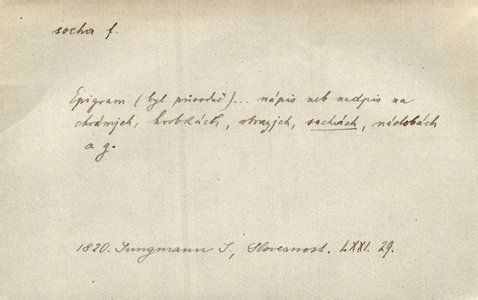 socha f.
Epigram (byl původně)... nápis neb nadpis na
chrámjch, hrobkách, obrazjch, sochách, nádobách
a g.
1820. Jungmann J, Slovesnost. LXXI. 29.